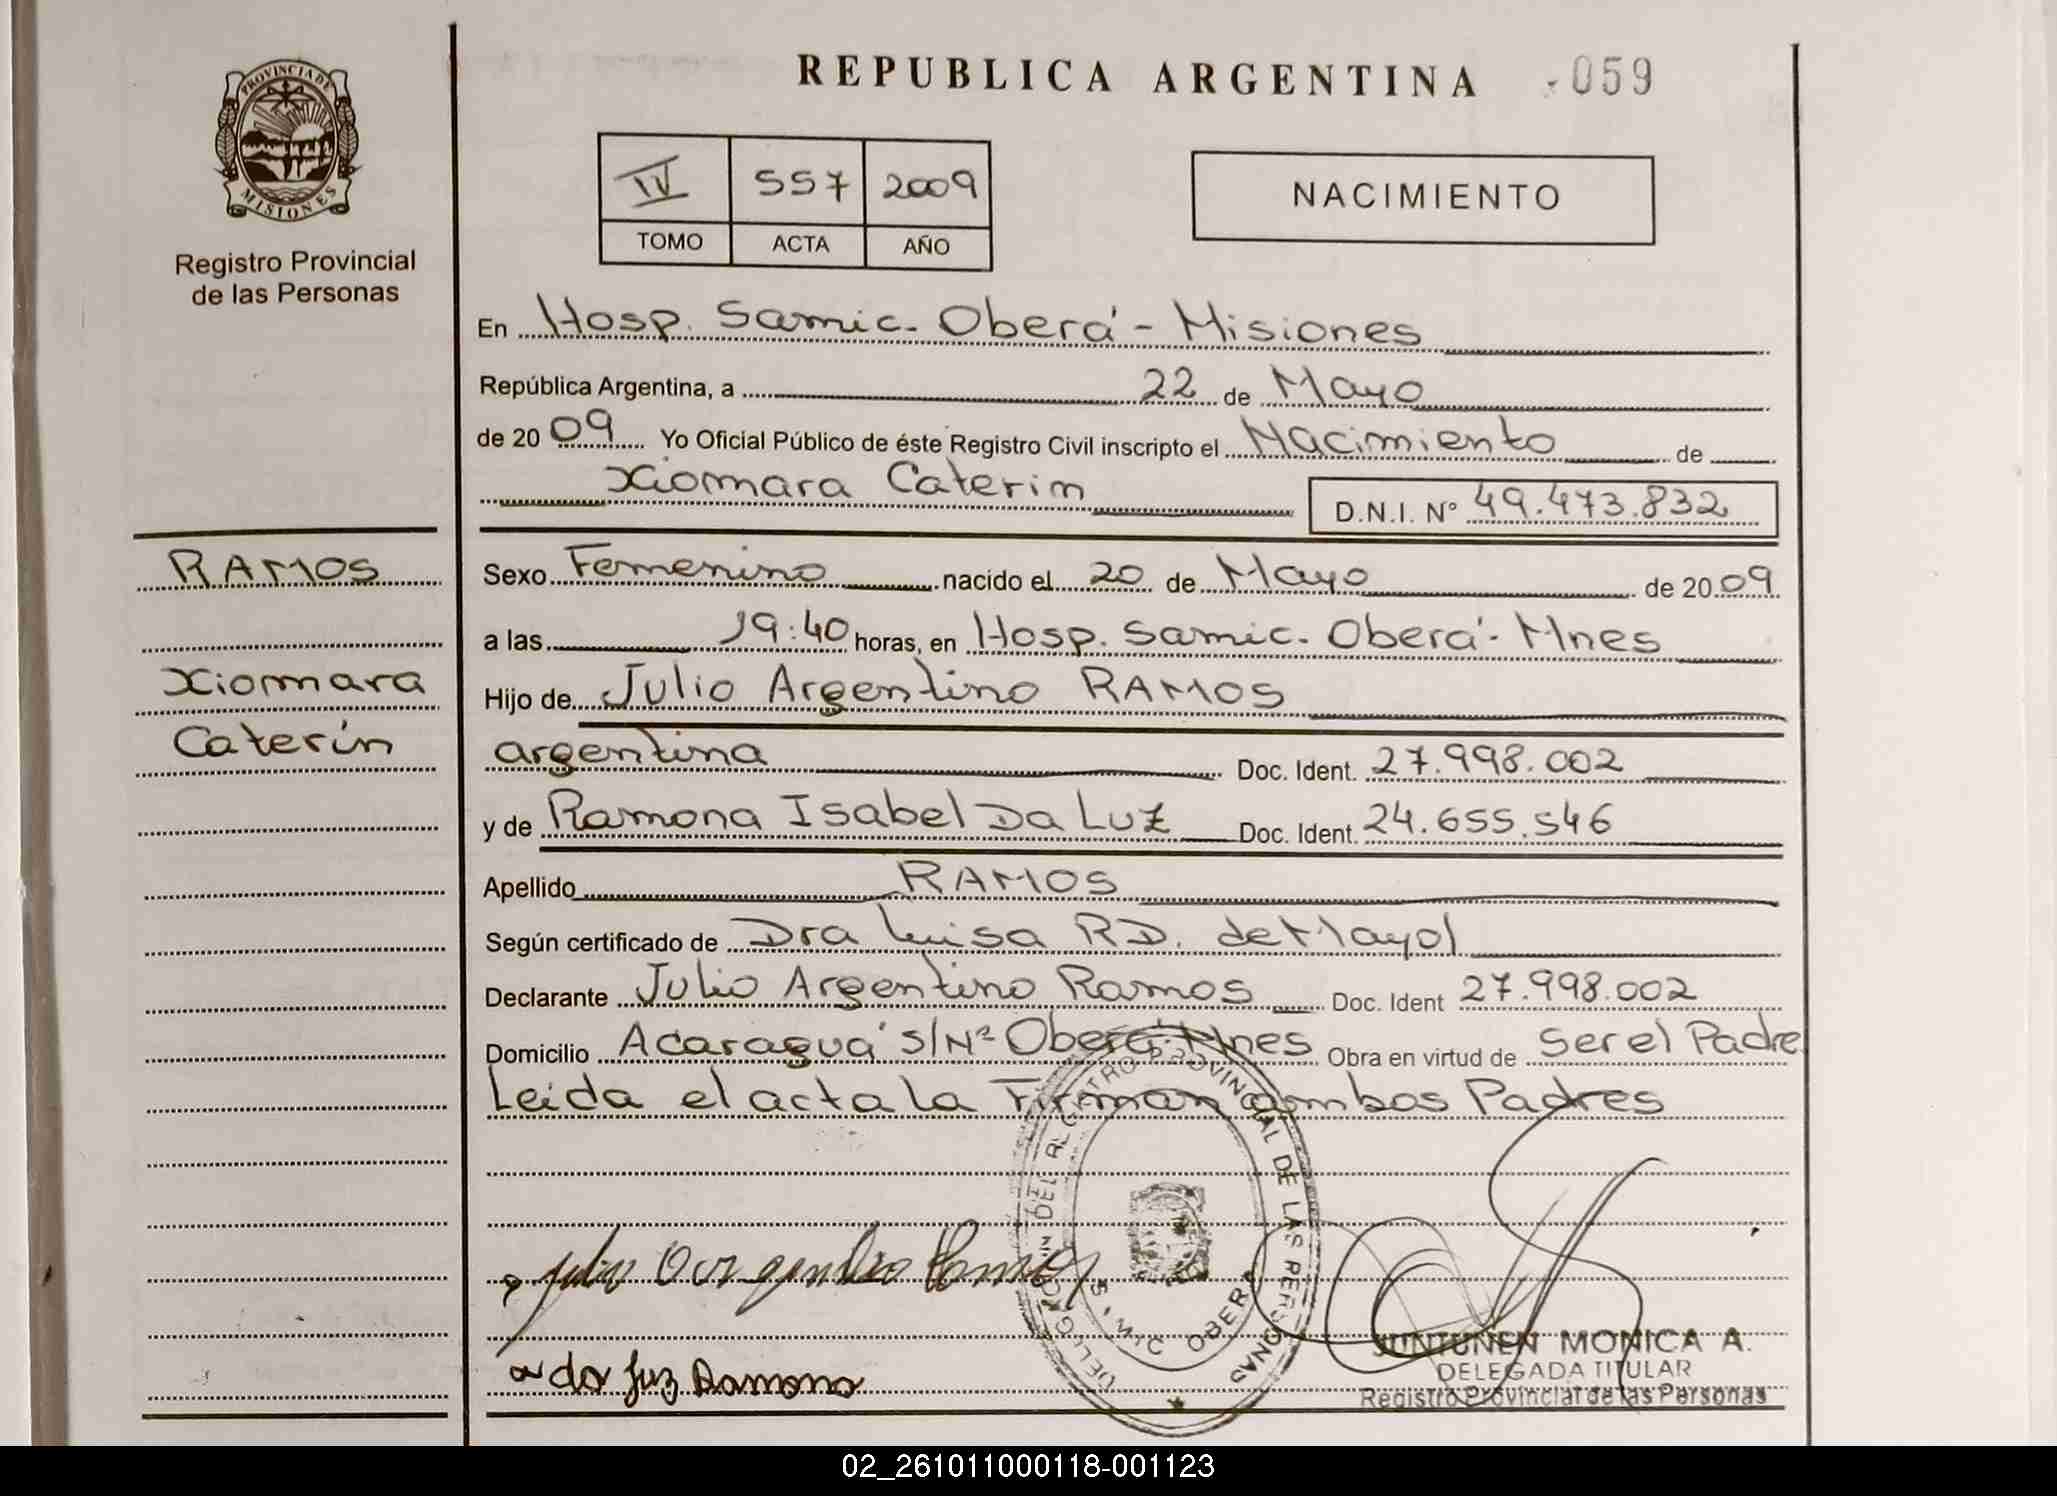 REPUBLICA ARGENTINA - 059
PROVINCIA DE
MISIONES
Registro Provincial
de las Personas
IV 557 2009
TOMO ACTA AÑO
NACIMIENTO
En Hosp. Samic. Oberá - Misiones
República Argentina, a 22 de Mayo
de 2009 Yo Oficial Público de éste Registro Civil inscripto el Nacimiento de
Xiomara Caterin D.N.I. N° 49.473.832
RAMOS
Xiomara
Caterin
Sexo Femenino nacido el 20 de Mayo de 2009
a las 19:40 horas, en Hosp. Samic. Oberá - Mnes
Hijo de Julio Argentino RAMOS
argentina Doc. Ident. 27.998.002
y de Ramona Isabel Da Luz Doc. Ident. 24.655.546
Apellido RAMOS
Según certificado de Dra Luisa RD. de Mayol
Declarante Julio Argentino Ramos Doc. Ident 27.998.002
Domicilio Acaraguá s/Nº Oberá. Mnes Obra en virtud de Ser el Padre
Leida el acta la Firman ambos Padres
DELEGACION DEL REGISTRO PROVINCIAL DE LAS PERSONAS
OBERA
Julio Argentino Ramos
da Luz Ramona
JUNTUNEN MONICA A.
DELEGADA TITULAR
Registro Provincial de las Personas
02_261011000118-001123